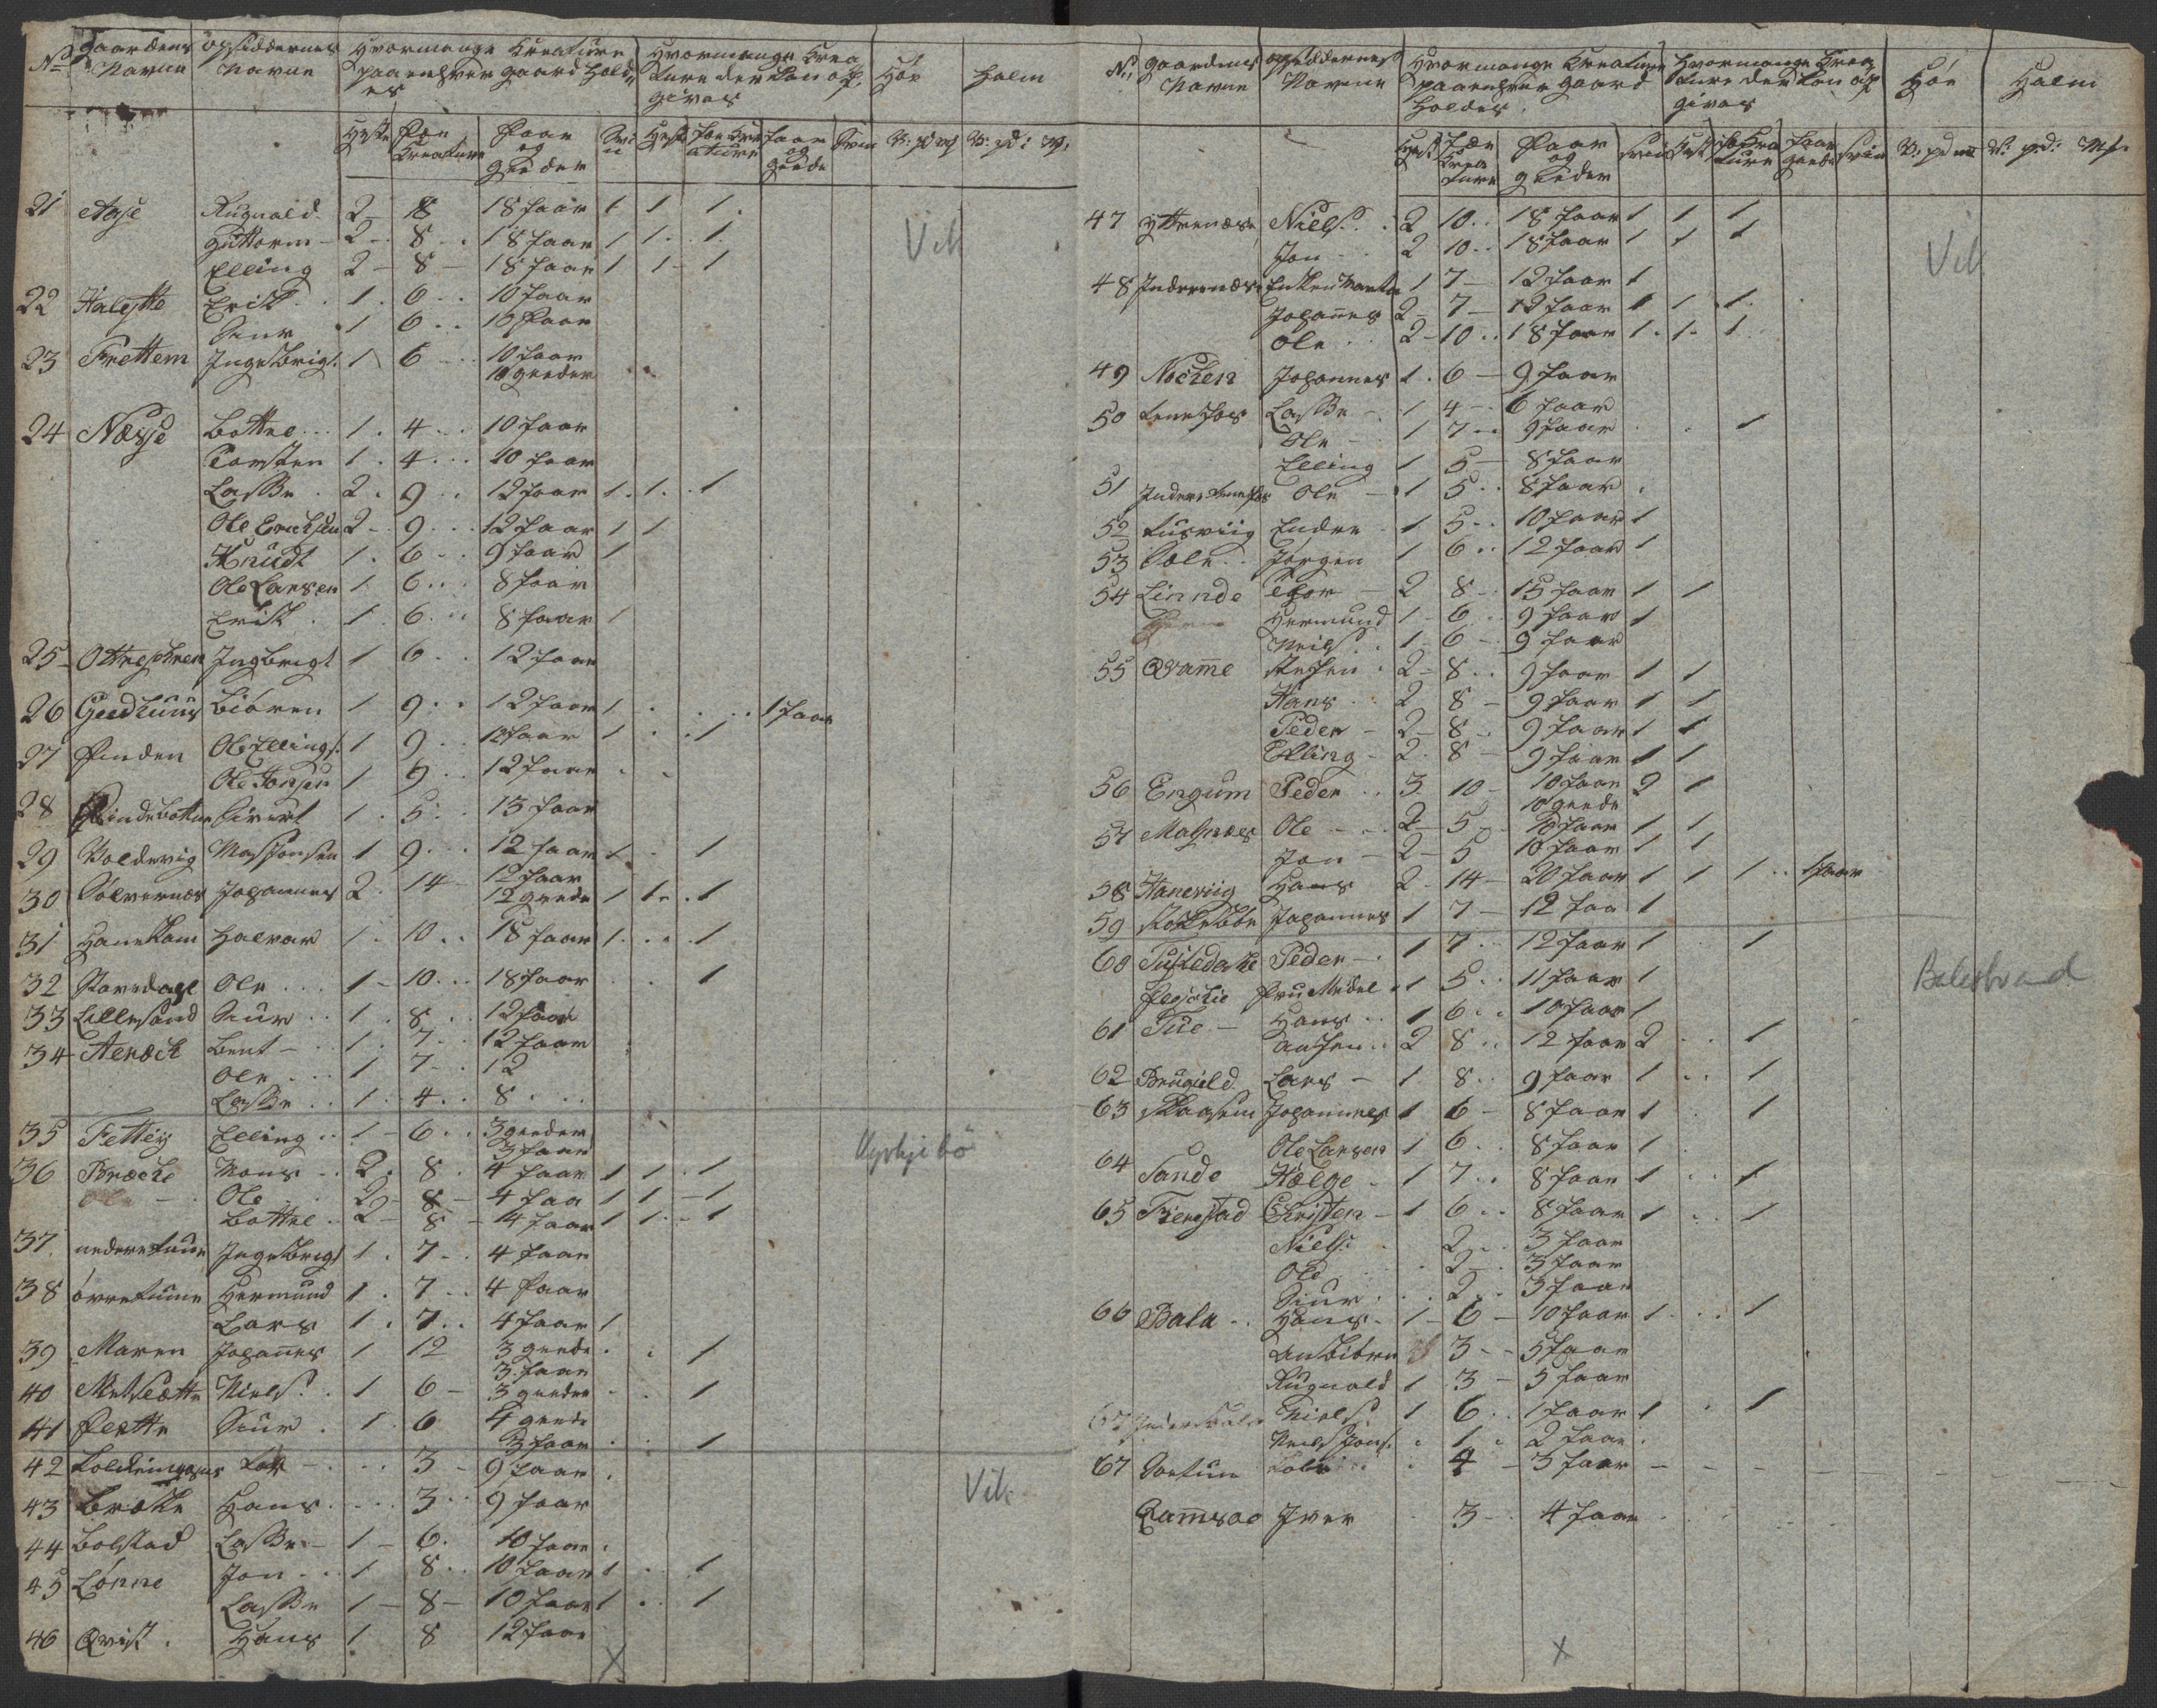 No gaardens Navne opsiddernes Navne Hvormange Kreature paa enhver gaard holdes Hvormange Kreature der kan af givas Höe Halm
Heste Fæe Kreature Faar og geeder Svin Hest Fæe Kreature Faar og geede Svin V: pd mf V: pd: mf.
21 Agse Rugnald 2 - 18 18 faar 1 1 1.
Guttorm - 2 - 8 - 18 faar 1 1 - 1 Vik
Elling 2 - 8 - 18 faar 1 1 - 1
22 Erick 1. 6 .. 10 faar
Siur 1 6 .. 10 faar
23 Frettem Ingebrigt 1 6 .. 10 faar
10 geeder
24 Næsse Bottel .. 1. 4 .. 10 faar
Torsten 1. 4 ... 10 faar
Lasse . 2. 9 .. 12 faar 1. 1. . 1
Ole Erichsen 2 - 9 ... 12 faar 1 1
Knudt 1. 6 .. 9 faar 1
Ole Larsen 1 6 ... 8 faar
Erick . 1. 6 ... 8 faar 1
25 Ingbrigt 1 6 .. 12 faar
26 Geedhuus Biören 1 9 .. 12 faar 1 . . . . . 1 faar
27 Finden Ole Ellings: 1 9 .. 12 faar 1 . . 1
Ole Jonsen 1 9 .. 12 faar
28 Findebotten Sivert 1. 5 .. 15 faar
29 Voldevig 1 9 ... 12 faar 1 . 1
30 Sölvernæs Johannes 2. 14 - 12 faar
12 geede 1 1. . 1
31 Hanekam Halvar 1. 10 .. 18 faar 1 . . . 1
32 Ole ... 1 - 10 ... 18 faar . . 1
33 Lillesand Siur .. 1. 8 .. 12 faar
34 Aenæck Bent - .. 1. 7 .. 12 faar
Ole ... 1 7 .. 12
Lasse .. 1. 4 .. 8 ...
35 Fetteis Elling .. 1 - 6 .. 3 geeder
3 faar Kyrkjebö
36 Bræcke Mons .. 2. 8. 4 faar 1 1 . 1
Ole .. 2 - 8 - 4 faa 1 1 - 1
Bottel . 2 - 8 - 4 faar 1 1 - - 1
37. nedretune Ingebrigt 1. 7 .. 4 faar
38 övretune Hermund 1. 7 .. 4 faar
Lars 1. 7 .. 4 faar 1
39 Maren Johannes 1 12 3 geede . . 1
3 faar
40 Niels . 1 6 - 3 geeder . . 1
41 Siur . 1. 6 4 geede
3 faar . . 1
42 - . .. 3 - 9 faar .
43 Bræke Hans .. .. 3 .. 9 faar Vik
44 Bolstad Lasse - 1 - 6. 10 faar .
45 Lönne Jon .. 1 8 .. 10 faar 1 . . 1
Lasse 1 - 8 - 10 faar 1 . . 1
46 Qvist . Hans 1 8 12 faar
X
No: gaardens Navne opsiddernes Navne Hvormange Kreature paa enhver gaard holdes. Hvormange Kreature der kan af givas Höe Halm
Hest Fæe Kreature Faar og geeder Svin Hest Fæe Kreature Faar geede Svin V: pd mf V: pd: Mf.
47 Yttrenæse Niels .. 2 10 .. 18 faar 1 1 1
Jon .. 2 10 .. 18 faar 1 1 1 Vik
48 Inderenæse Enken Marta 1 7 - 12 faar 1
Johannes 2 - 7 - 12 faar 1 1 1.
Ole .. 2 - 10 .. 18 faar 1. 1. 1
49 Nöcken Johannes 1. 6 - 9 faar
50 Lasse - 1 4 - 6 faar
Ole - 1 7 .. 9 faar . . 1
Elling 1 5 - 8 faar
51 Ole - 1 5 .. 8 faar .
52 Endre . 1 5 .. 10 faar 1
53 Sæle .. Jörgen 1 6 .. 12 faar 1
54 Linnde Thor - 2 8 .. 15 faar 1 1
Hermund 1 - 6 .. 9 faar 1
Neils .. 1 - 6 - 9 faar
55 Qvamme Stefen . 2 - 8 .. 9 faar 1 1
Hans .. 2 8 - 9 faar 1 1
Peder - 2 - 8 - 9 faar 1 1
Elling - 2. 8 - 9 faar 1 1
56 Engum Peder .. 3 10 - 10 faar 2 1
10 geede
57 Malsnæs Ole - .. 2 - 5 .. 10 faar 1 1
Jon - 2 - 5 10 faar 1 1
58 Haneviig Hans 2 - 14 - 20 faar 1 1 1 .. 1 faar
59 Johannes 1 7 - 12 faa 1
60 Tuftedahl Peder - . 1 7 .. 12 faar 1 . 1
Flesche Fru Medel . 1 5 .. 11 faar 1 Balestrand
61 Tue. - Hans .. 1 6 .. 10 faar 1
Anfen .. 2 8 .. 12 faar 2 . . 1
62 Brugield Lars - 1 8 .. 9 faar 1 .. 1
63 Skaasem Johannes 1 6 - 8 faar 1 . 1
Ole Larsen 1 6 .. 8 faar 1 .
64 Sande Hælge . 1 7 .. 8 faar 1 . . 1
65 Tienstad Christen - 1 6 .. 8 faar 1 . . 1
Niels: . . 2 .. 3 faar
Ole . 2 .. 3 faar
Siur .. 2 .. 3 faar
66 Bala .. Hans . 1 - 6 - 10 faar 1 . . . 1
Ansbiörn 3 - - 5 faar
Rugnald 1 3 - 5 faar
67 Niels. 1 6 .. 1 faar 1 . 1
Neils Jons: . 1 . 2 faar .
67 Sortun . 4 - 3 faar - - - - - - - -
Qammsoe Iver . 3 - 4 faar
X